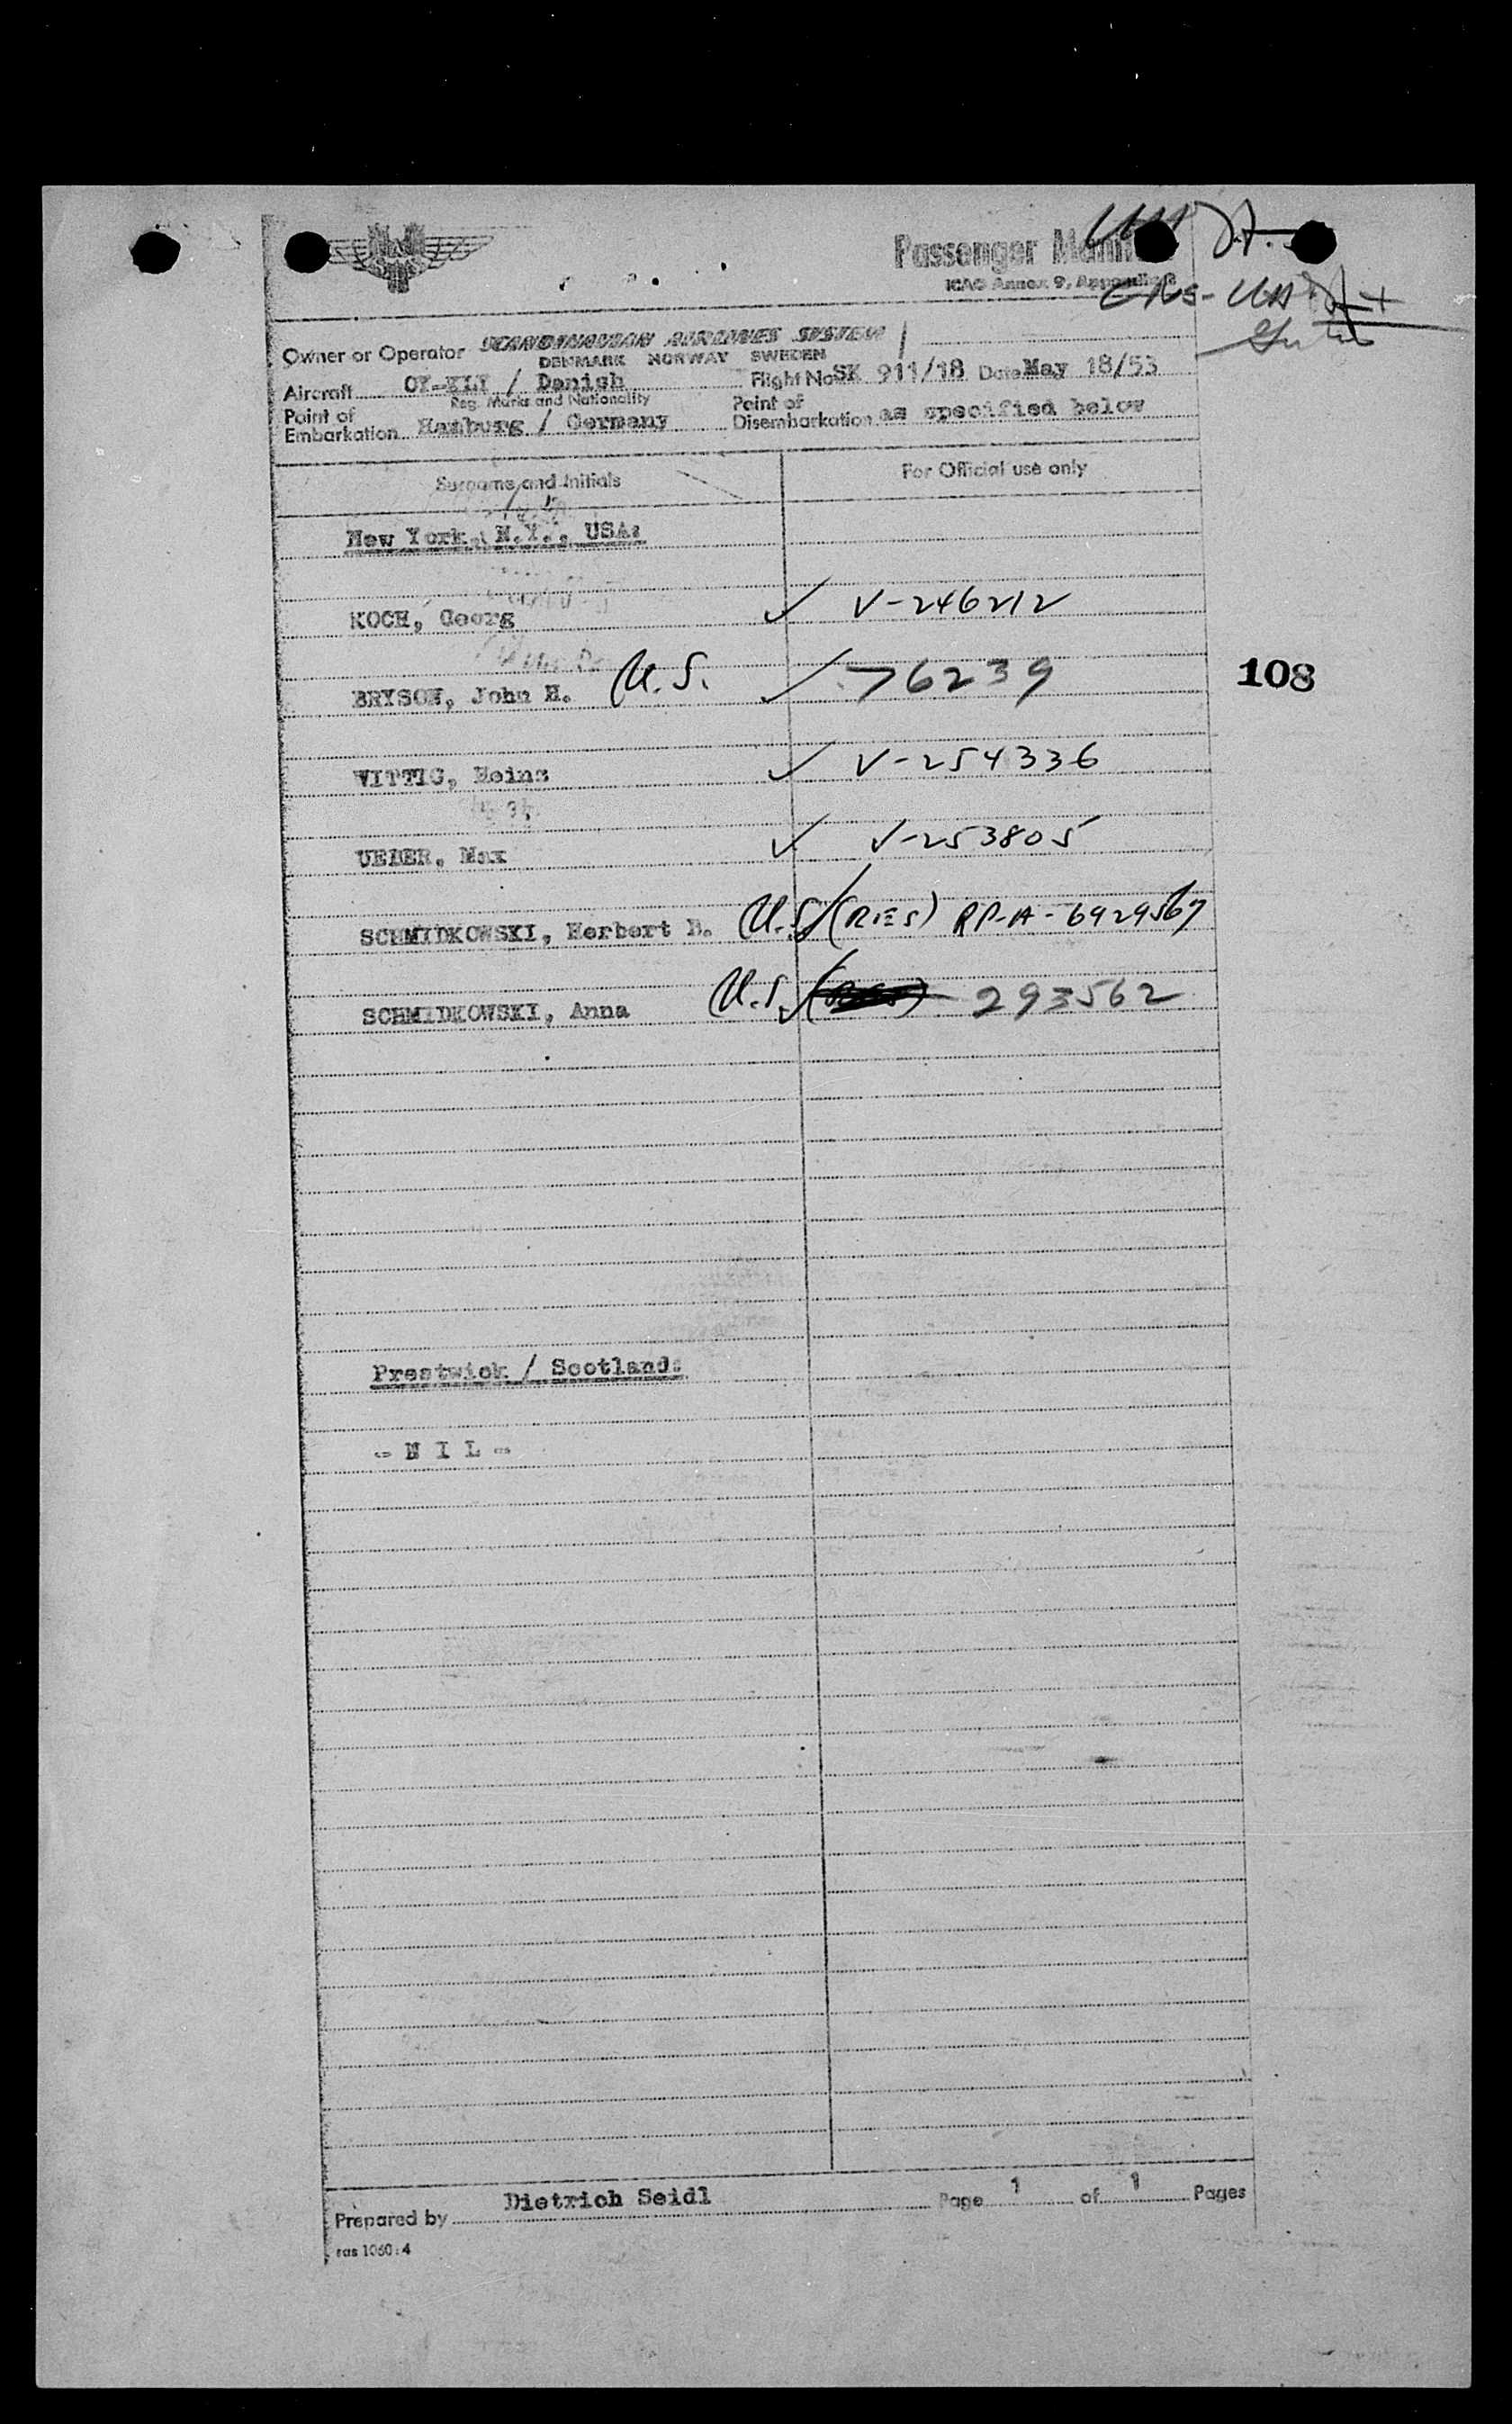 Passenger
ICAO Annex 9, Appendix
Owner or Operator SCANDINAVIAN AIRLINES SYSTEM
DENMARK NORWAY SWEDEN
Aircraft OY-KLY / Danish Flight No SK 911/18 Date May 18/53
Reg. Marks and Nationality
Point of Embarkation Hamburg / Germany Point of Disembarkation as specified below
Surname and Initials For Official use only
New York, N.Y., USA:
KOCH, Georg ✓ V-246212
BRYSON, John H. U.S. ✓ 76239
108
WITTIG, Heinz ✓ V-254336
UEBER, Max ✓ V-253805
SCHMIDKOWSKI, Herbert B. U.S. ✓ (RES) RP-A-6929567
SCHMIDKOWSKI, Anna U.S. ✓ 293562
Prestwick / Scotland:
- N I L -
Prepared by Dietrich Seidl Page 1 of 1 Pages
sas 1060:4